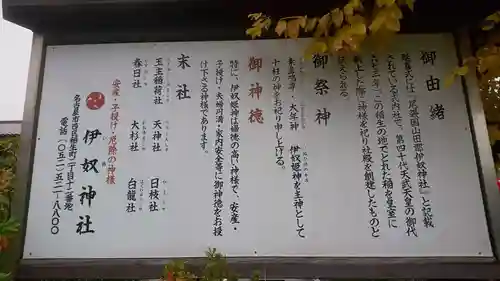 御由緒
延喜式には、「尾張国山田郡伊奴神社」と記載
されている式内社で、第四十代天武天皇の御代
この稲生の地でとれた稲を皇室に
献上した際に神様を祀り社殿を創建したものと
伝えられる。
御祭神
素盞嗚尊・大年神・伊奴姫神を主神として
十柱の神をお祀り申し上げる。
御神徳
特に、伊奴姫神は婦徳の高い神様で、安産・
子授け・夫婦円満・家内安全等に御神徳をお授
け下さる神様であります。
末社
玉主稲荷社 天神社 日枝社
春日社 大杉社 白龍社
安産・子授け・厄除の神様
伊奴神社
名古屋市西区稲生町二丁目十二番地
電話(〇五二)五二一-八八〇〇